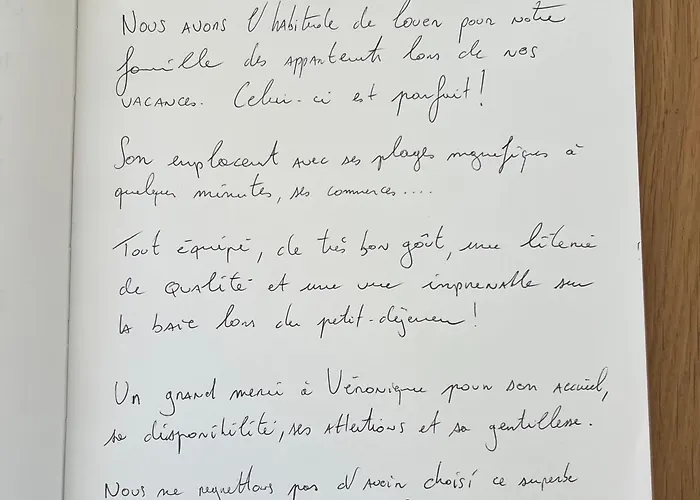 Nous avons l'habitude de louer pour notre
famille des appartements lors de nos
vacances. Celui-ci est parfait !
Son emplacement avec ses plages magnifiques à
quelques minutes, ses commerces....
Tout équipé, de très bon goût, une literie
de qualité et une vue imprenable sur
la baie lors du petit-déjeuner !
Un grand merci à Véronique pour son accueil,
sa disponibilité, ses attentions et sa gentillesse.
Nous ne regrettons pas d'avoir choisi ce superbe